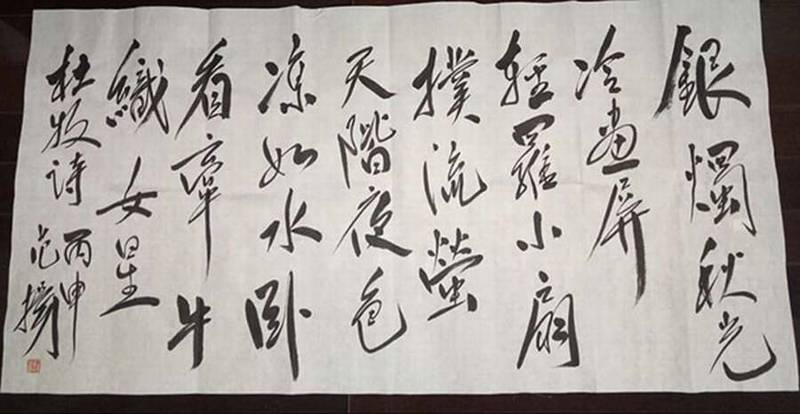 銀燭秋光
冷畫屏
輕羅小扇
撲流螢
天階夜色
涼如水卧
看牽牛
織女星
杜牧诗 丙申
范揚